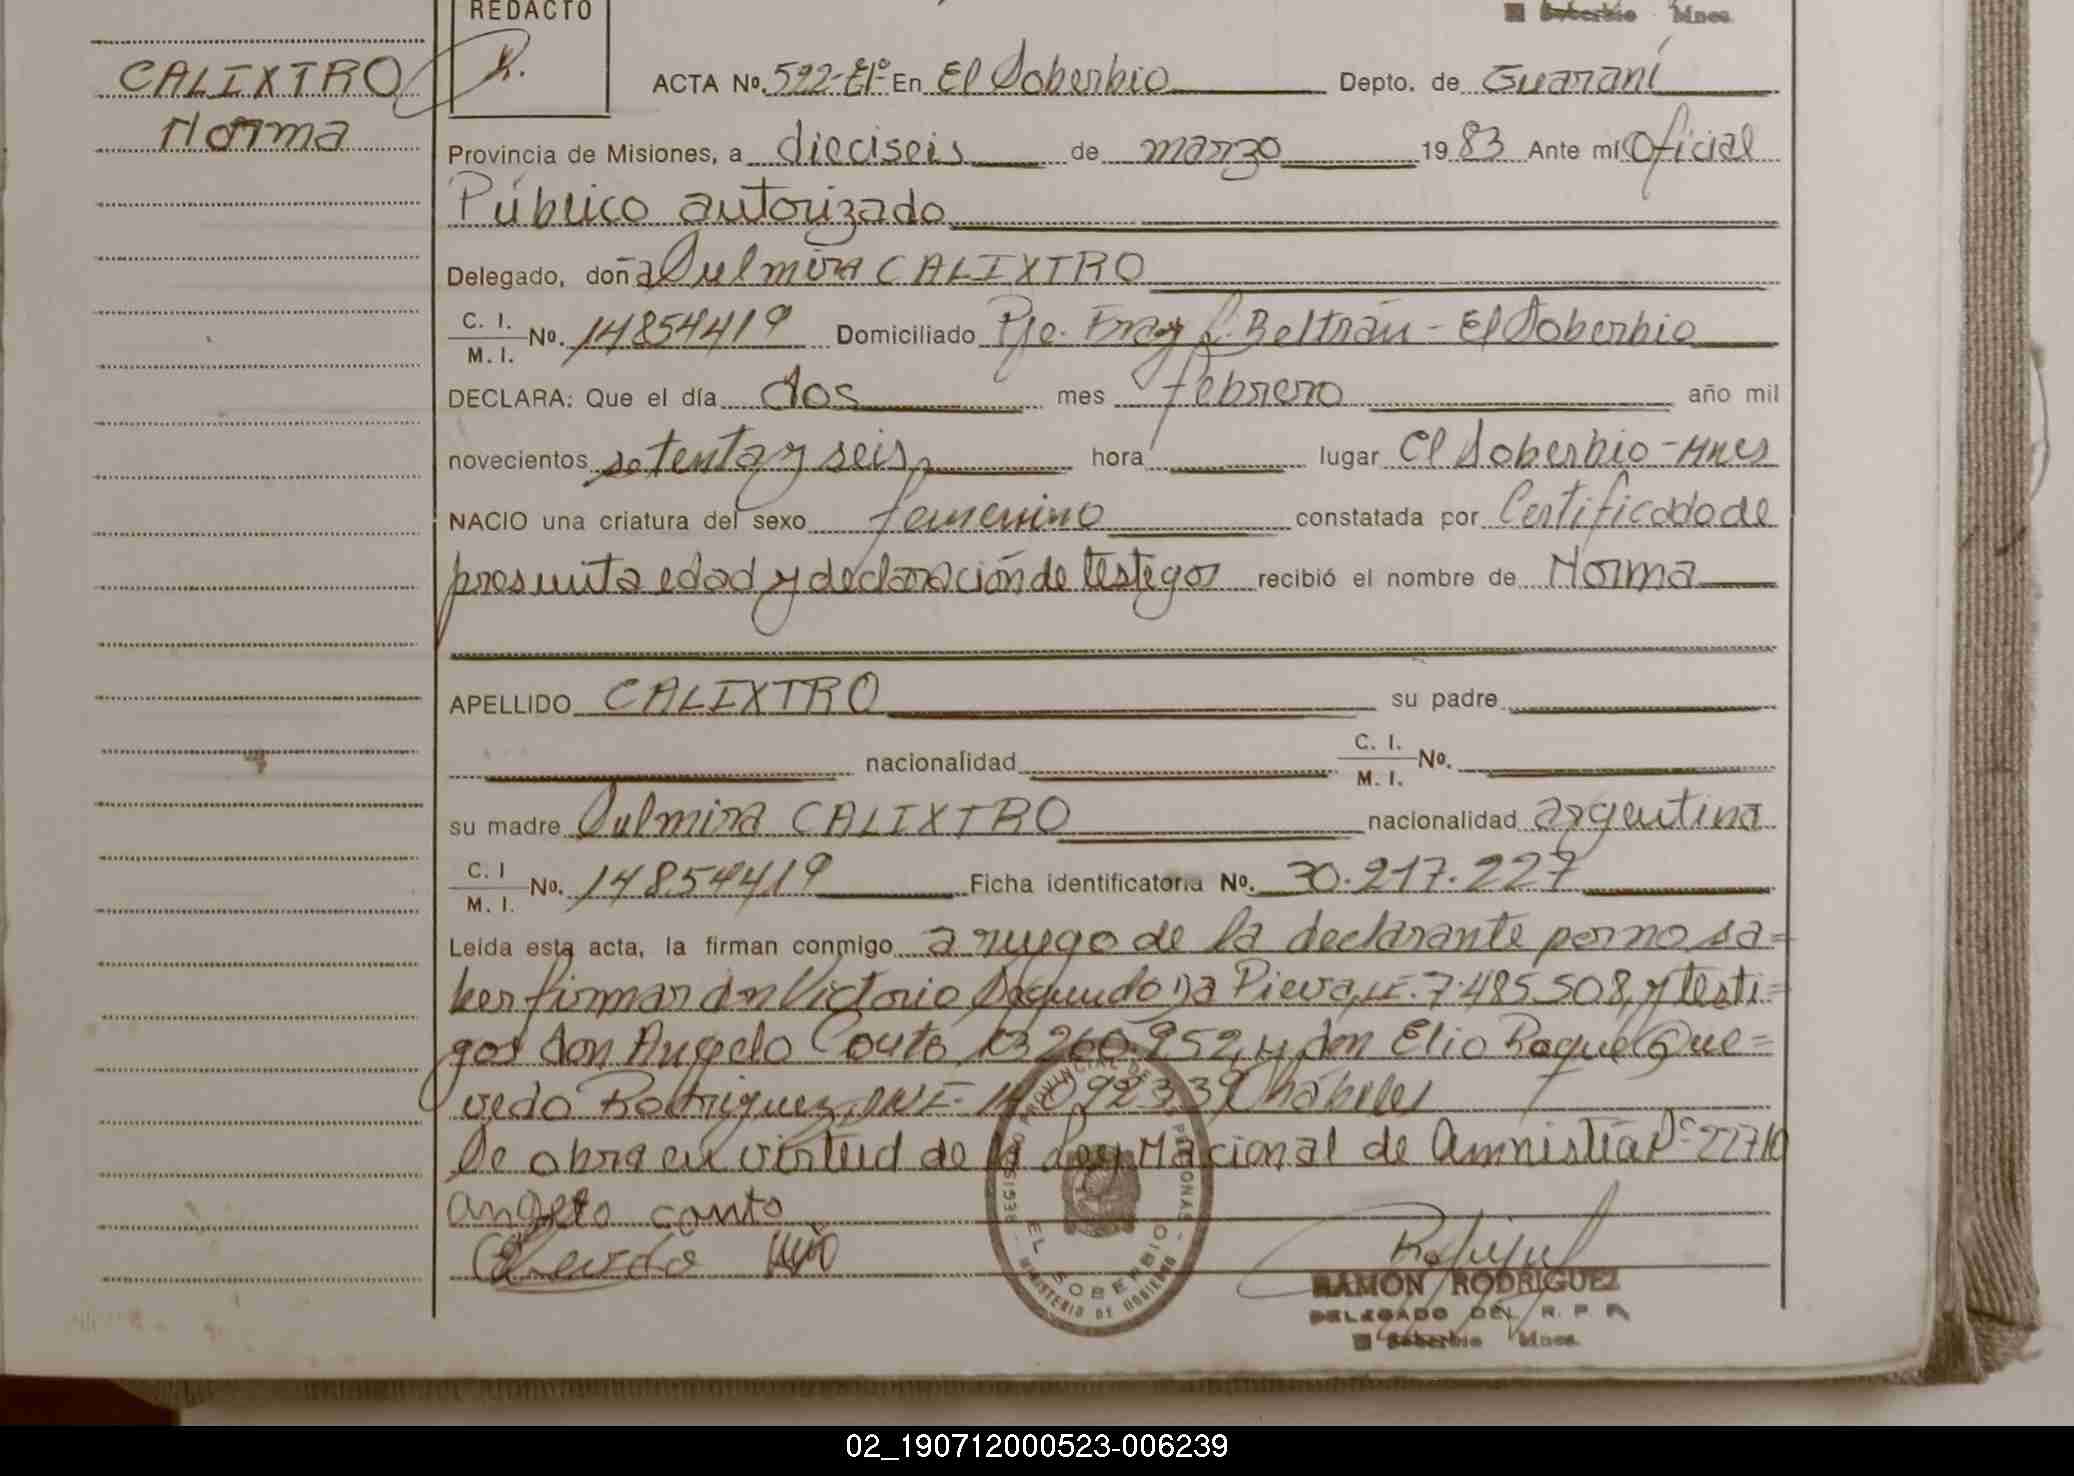 REDACTO
Soberbio Mnes.
CALIXTRO
Norma
ACTA Nº. 522-Eº- En El Soberbio Depto. de Guaraní
Provincia de Misiones, a dieciseis de marzo 1983 Ante mí Oficial
Público autorizado
Delegado, doña Dulmira CALIXTRO
C. I.
M. I. Nº. 14854419 Domiciliado Pje. Fray L. Beltrán - El Soberbio
DECLARA: Que el día dos mes febrero año mil
novecientos setenta y seis, hora lugar El Soberbio - Mnes
NACIO una criatura del sexo femenino constatada por Certificado de
presunta edad y declaración de testigos recibió el nombre de Norma
APELLIDO CALIXTRO su padre
nacionalidad C. I.
M. I. Nº.
su madre Dulmira CALIXTRO nacionalidad argentina
C. I
M. I. Nº. 14854419 Ficha identificatoria Nº. 30.217.227
Leída esta acta, la firman conmigo a ruego de la declarante por no sa=
ber firmar don Victorio Segundo Da Pieva, 7.485.508, y testi=
gos don Angelo Couto, 13260.952, y don Elio Roque Que=
vedo Rodriguez, DNI- 14.092.339 hábiles
Se obra en virtud de la Ley Nacional de Amnistía Nº 22710
angelo couto
REGISTRO PROVINCIAL DE LAS PERSONAS
EL SOBERBIO
MINISTERIO DE GOBIERNO
RAMON RODRIGUEZ
DELEGADO DEL R. P. P.
Soberbio Mnes.
02_190712000523-006239